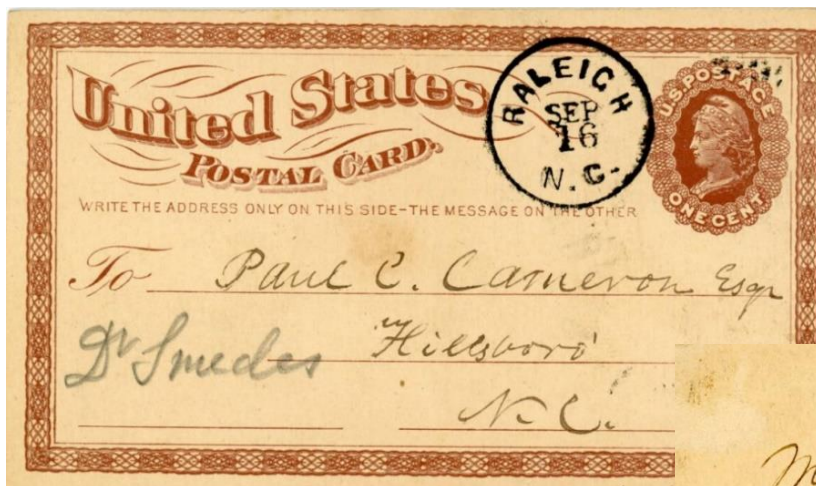 United States
POSTAL CARD.
RALEIGH
SEP
16
N.C.
U.S. POSTAGE
ONE CENT
WRITE THE ADDRESS ONLY ON THIS SIDE-THE MESSAGE ON THE OTHER
To Paul C. Cameron Esqr
Dr Smedes
Hillsboro
N.C.